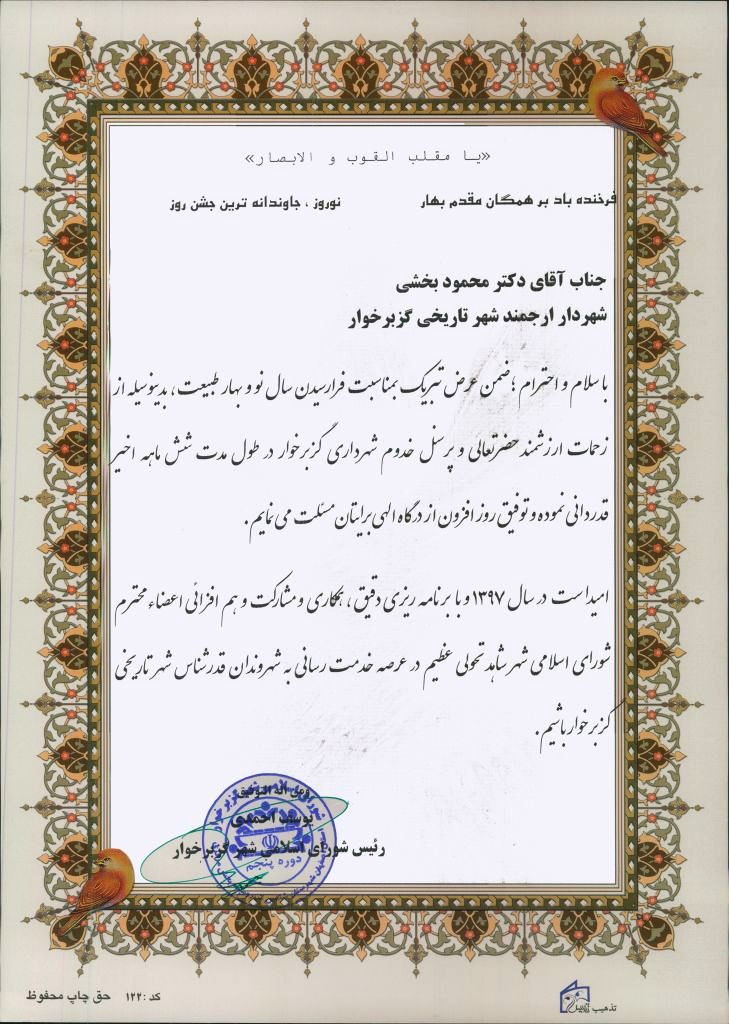 «یا مقلب القوب و الابصار»
فرخنده باد بر همگان مقدم بهار نوروز ، جاوندانه ترین جشن روز
جناب آقای دکتر محمود بخشی
شهردار ارجمند شهر تاریخی گزبرخوار
با سلام و احترام ؛ ضمن عرض تبریک بمناسبت فرارسیدن سال نو و بهار طبیعت ، بدینوسیله از
زحمات ارزشمند حضرتعالی و پرسنل خدوم شهرداری گزبرخوار در طول مدت شش ماهه اخیر
قدردانی نموده و توفیق روز افزون از درگاه الهی برایتان مسئلت می نمایم .
امید است در سال ۱۳۹۷ و با برنامه ریزی دقیق ، همکاری و مشارکت و هم افزائی اعضاء محترم
شورای اسلامی شهر شاهد تحولی عظیم در عرصه خدمت رسانی به شهروندان قدرشناس شهر تاریخی
گزبرخوار باشیم .
ومن اله التوفیق
یوسف احمدی
رئیس شورای اسلامی شهر گزبرخوار
دوره پنجم
کد : ۱۲۲ حق چاپ محفوظ
تذهیب